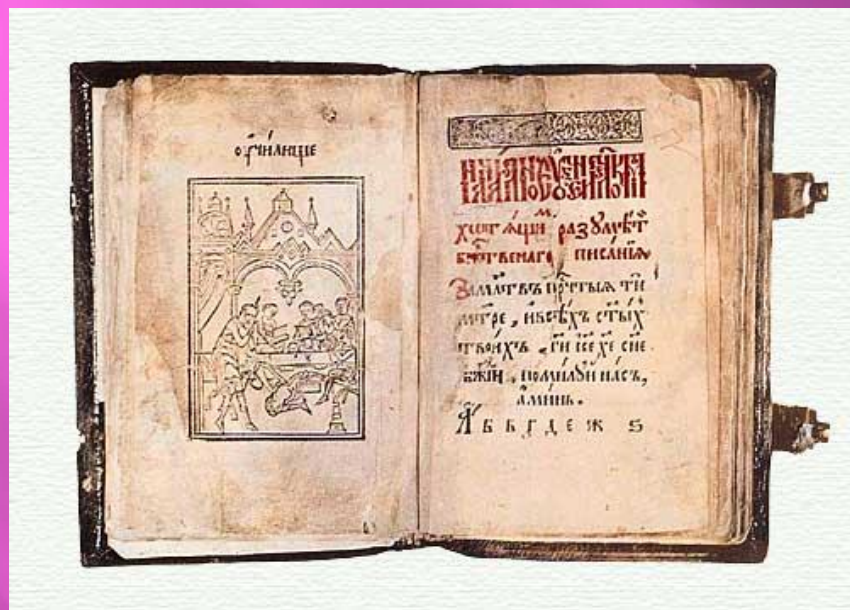 ᲂу҆чи́лище
хотѧ́щимъ разꙋмѣ́ти
бж҃ственаго писа́нїѧ
За мл҃твъ пречⷭ҇тыѧ ти
мт҃ре, и всѣ́хъ ст҃ы́хъ
твои́хъ, гⷭ҇и і҆се хе сн҃е
бж҃їи, поми́лꙋи на́съ,
а҆ми́нь.
А Б В Г Д Е Ж Ѕ